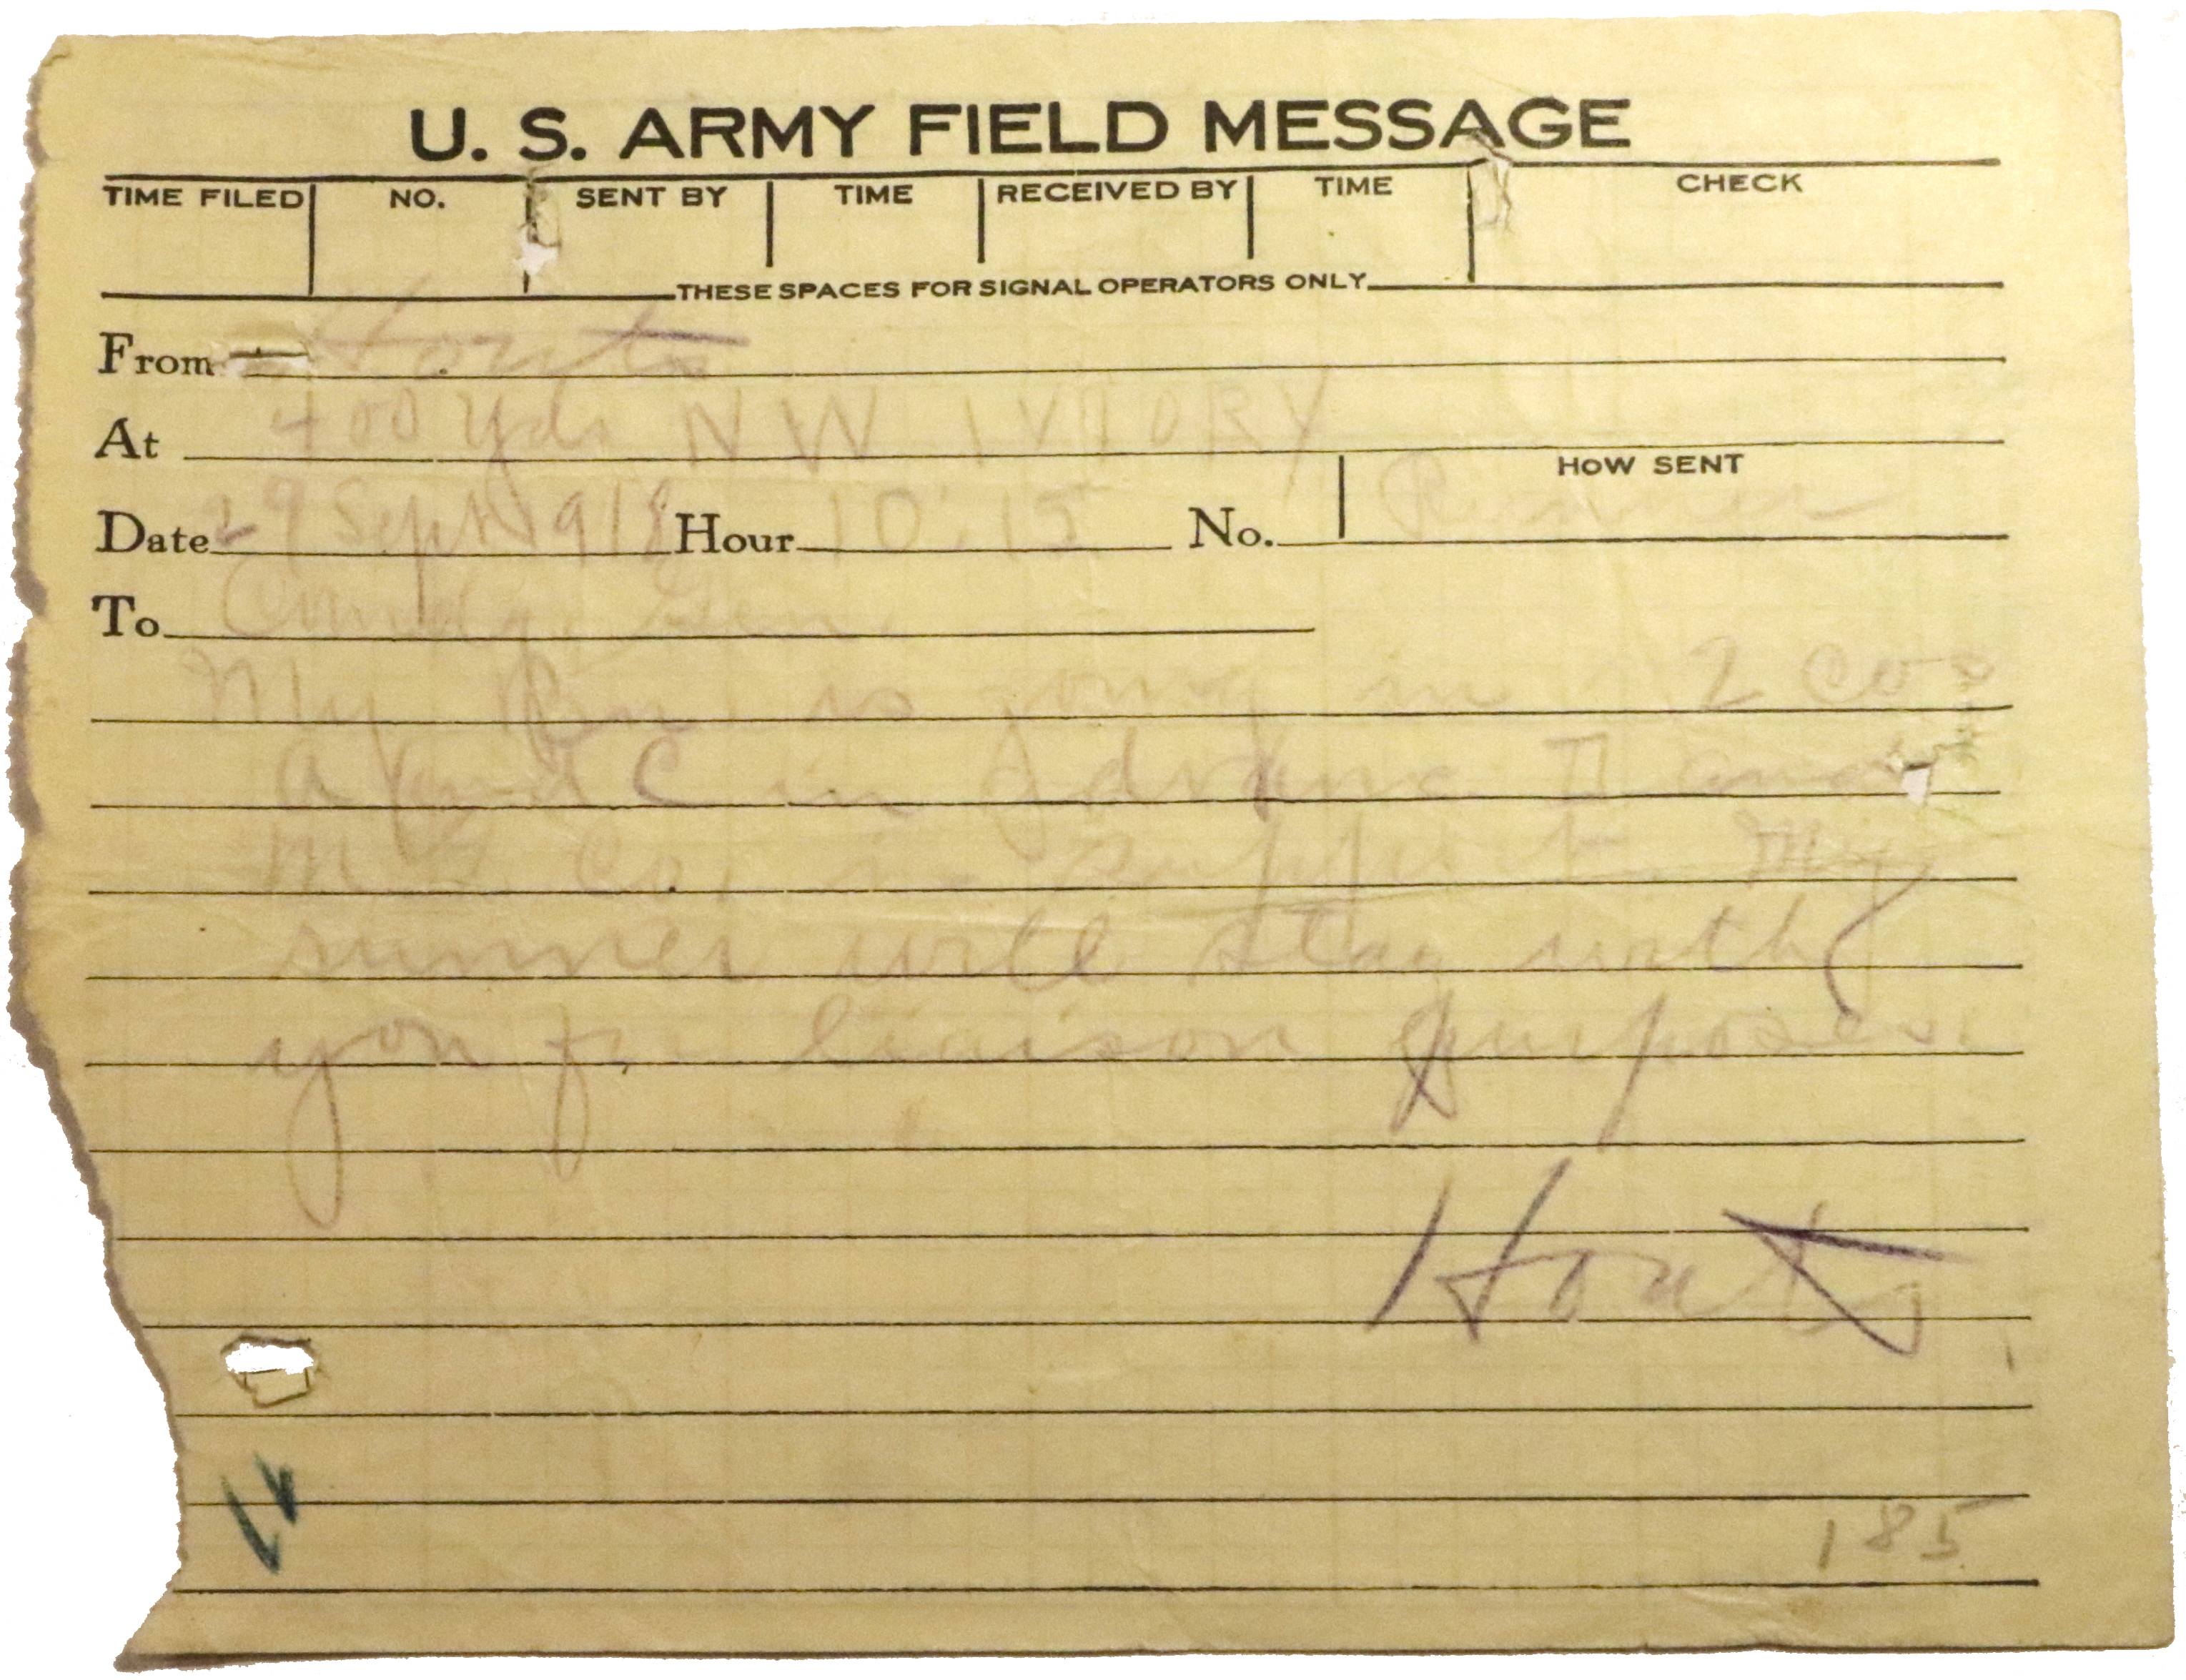 U. S. ARMY FIELD MESSAGE
TIME FILED NO. SENT BY TIME RECEIVED BY TIME CHECK
THESE SPACES FOR SIGNAL OPERATORS ONLY
From Houts
At 400 yds NW IVTORY
HOW SENT
Date 29 Sept 1918 Hour 10:15 No. Runner
To Comdg. Gen.
My Bn is going in 2 Cos
A and C in advance and
M G Co. in support. My
runner will stay with
you for liaison purposes.
Houts
185